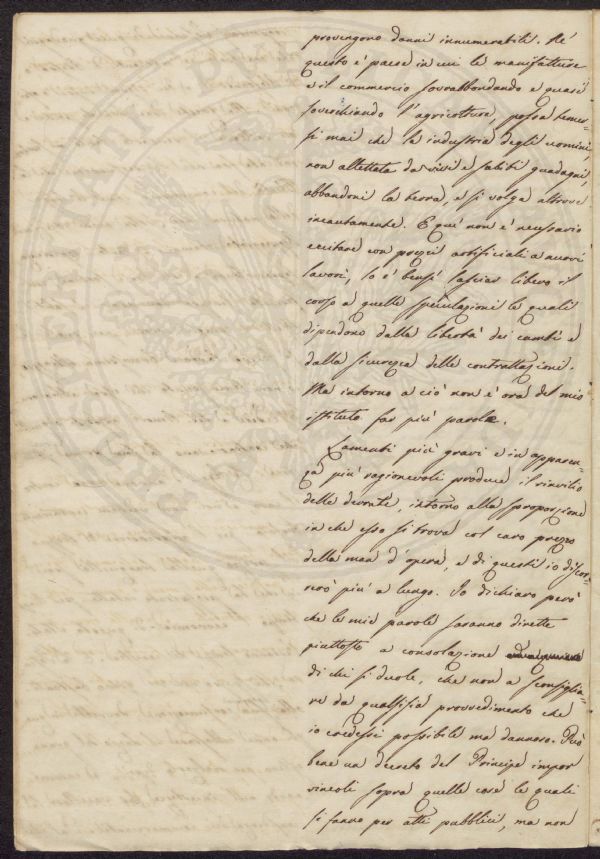 provengono danni innumerabili. Né
questo è paese in cui le manifatture
e il commercio sovrabbondando e quasi
soverchiando l'agricoltura, possa temer-
si mai che la industria degli uomini,
non allettata da vivi e subiti guadagni,
abbandoni la terra, e si volga altrove
incautamente. E quì non è necessario
eccitare con prezzi artificiali a nuovi
lavori, lo è bensì lasciar libero il
corso a quelle speculazioni le quali
dipendono dalla libertà dei cambi e
dalla sicurezza delle contrattazioni.
Ma intorno a ciò non è ora del mio
istituto far più parole.
Lamenti più gravi e in apparen-
za più ragionevoli produce il rinvilio
delle derrate, intorno alla sproporzione
in che esso si trova col caro prezzo
della man d'opera, e di questi io discor-
rerò più a lungo. Io dichiaro però
che le mie parole saranno dirette
piuttosto a consolazione
di chi si duole, che non a sconsiglia-
re da qualsisia provvedimento che
io credessi possibile ma dannoso. Può
bene un decreto del Principe impor
vincoli sopra quelle cose le quali
si fanno per atti pubblici, ma non